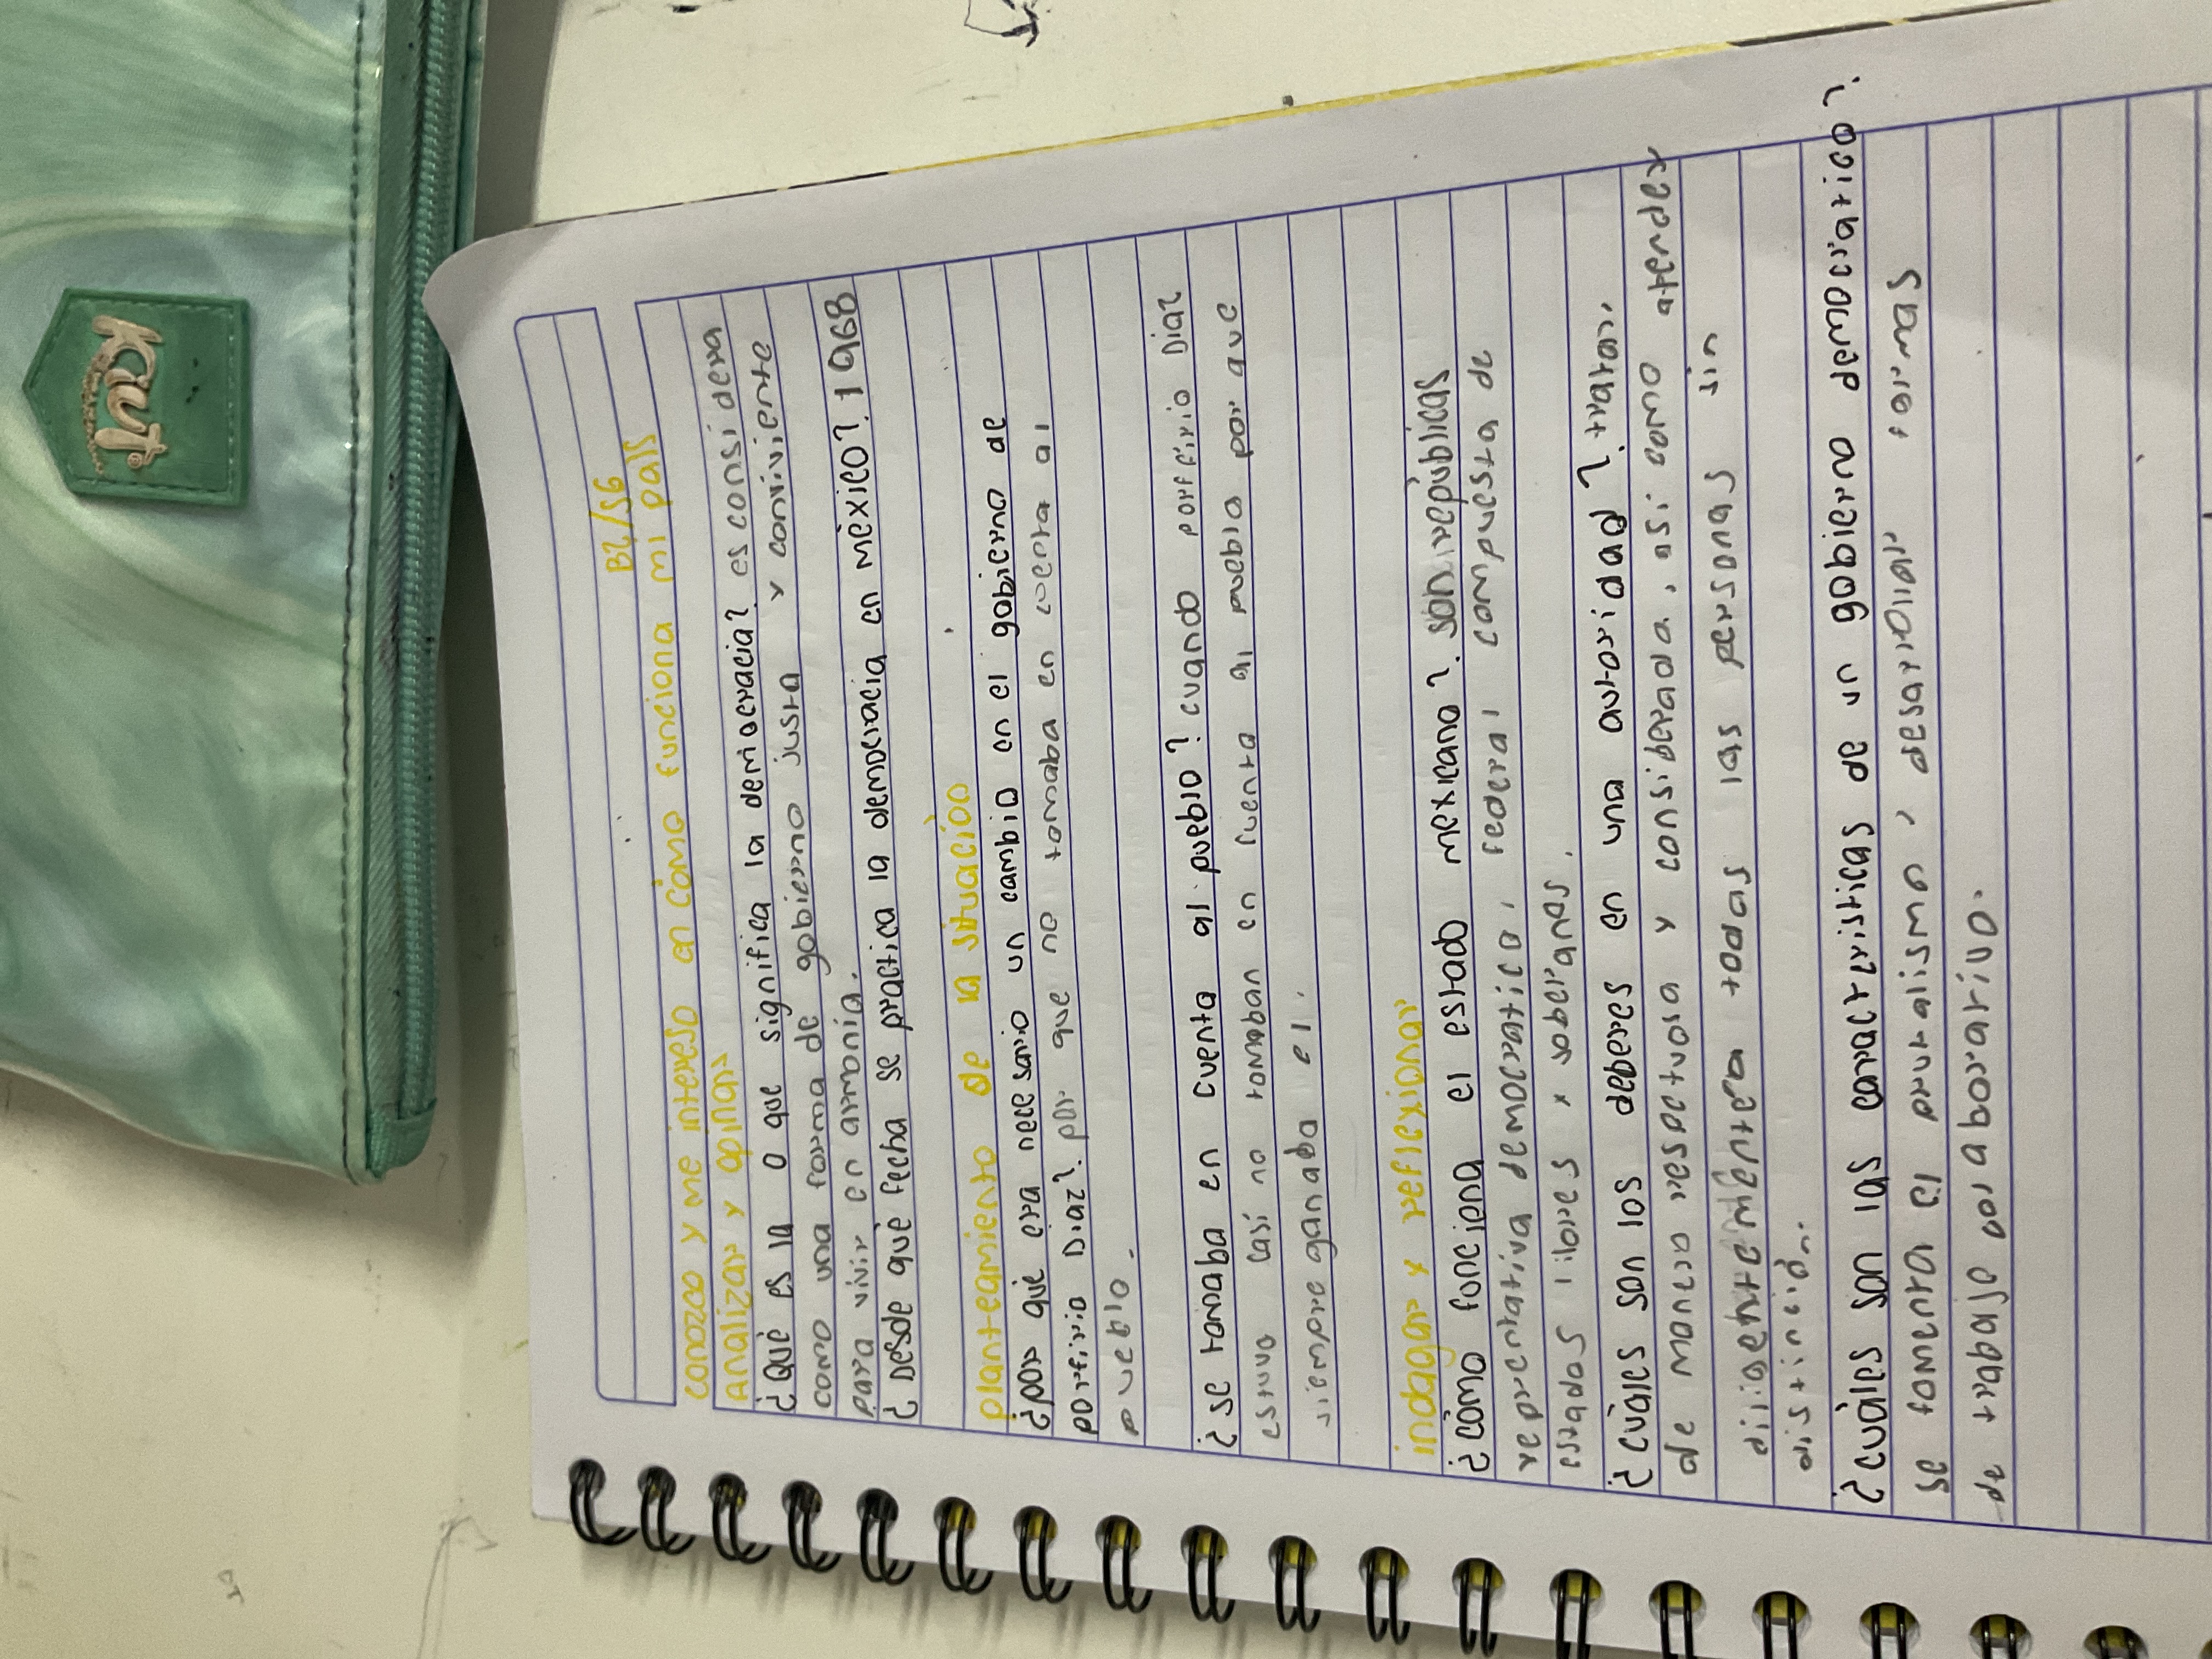 Kiut
B2/S6
conozco y me intereso en cómo funciona mi país
Analizar y opinar
¿Qué es la o que significa la democracia? es considera
como una forma de gobierno justa y conviviente
para vivir en armonía.
¿Desde qué fecha se practica la democracia en méxico? 1968
planteamiento de la situación
¿por qué era necesario un cambio en el gobierno de
porfirio Diaz? por que no tomaba en cuenta al
pueblo.
¿se tomaba en cuenta al pueblo? cuando porfirio Diaz
estuvo casi no tomaban en cuenta al pueblo por que
siempre ganaba el.
indagar y reflexionar
¿cómo funciona el estado mexicano? son repúblicas
representativa democratica, federal compuesta de
estados libres y soberanos.
¿cuáles son los deberes en una autoridad? tratar,
de manera respetuosa y considerada, asi como atender
diligentemente a todas las personas sin
distinción.
¿cuáles son las características de un gobierno democratico?
se fomenta la puntualismo, desarrollar, formas
de trabajo colaborativo.